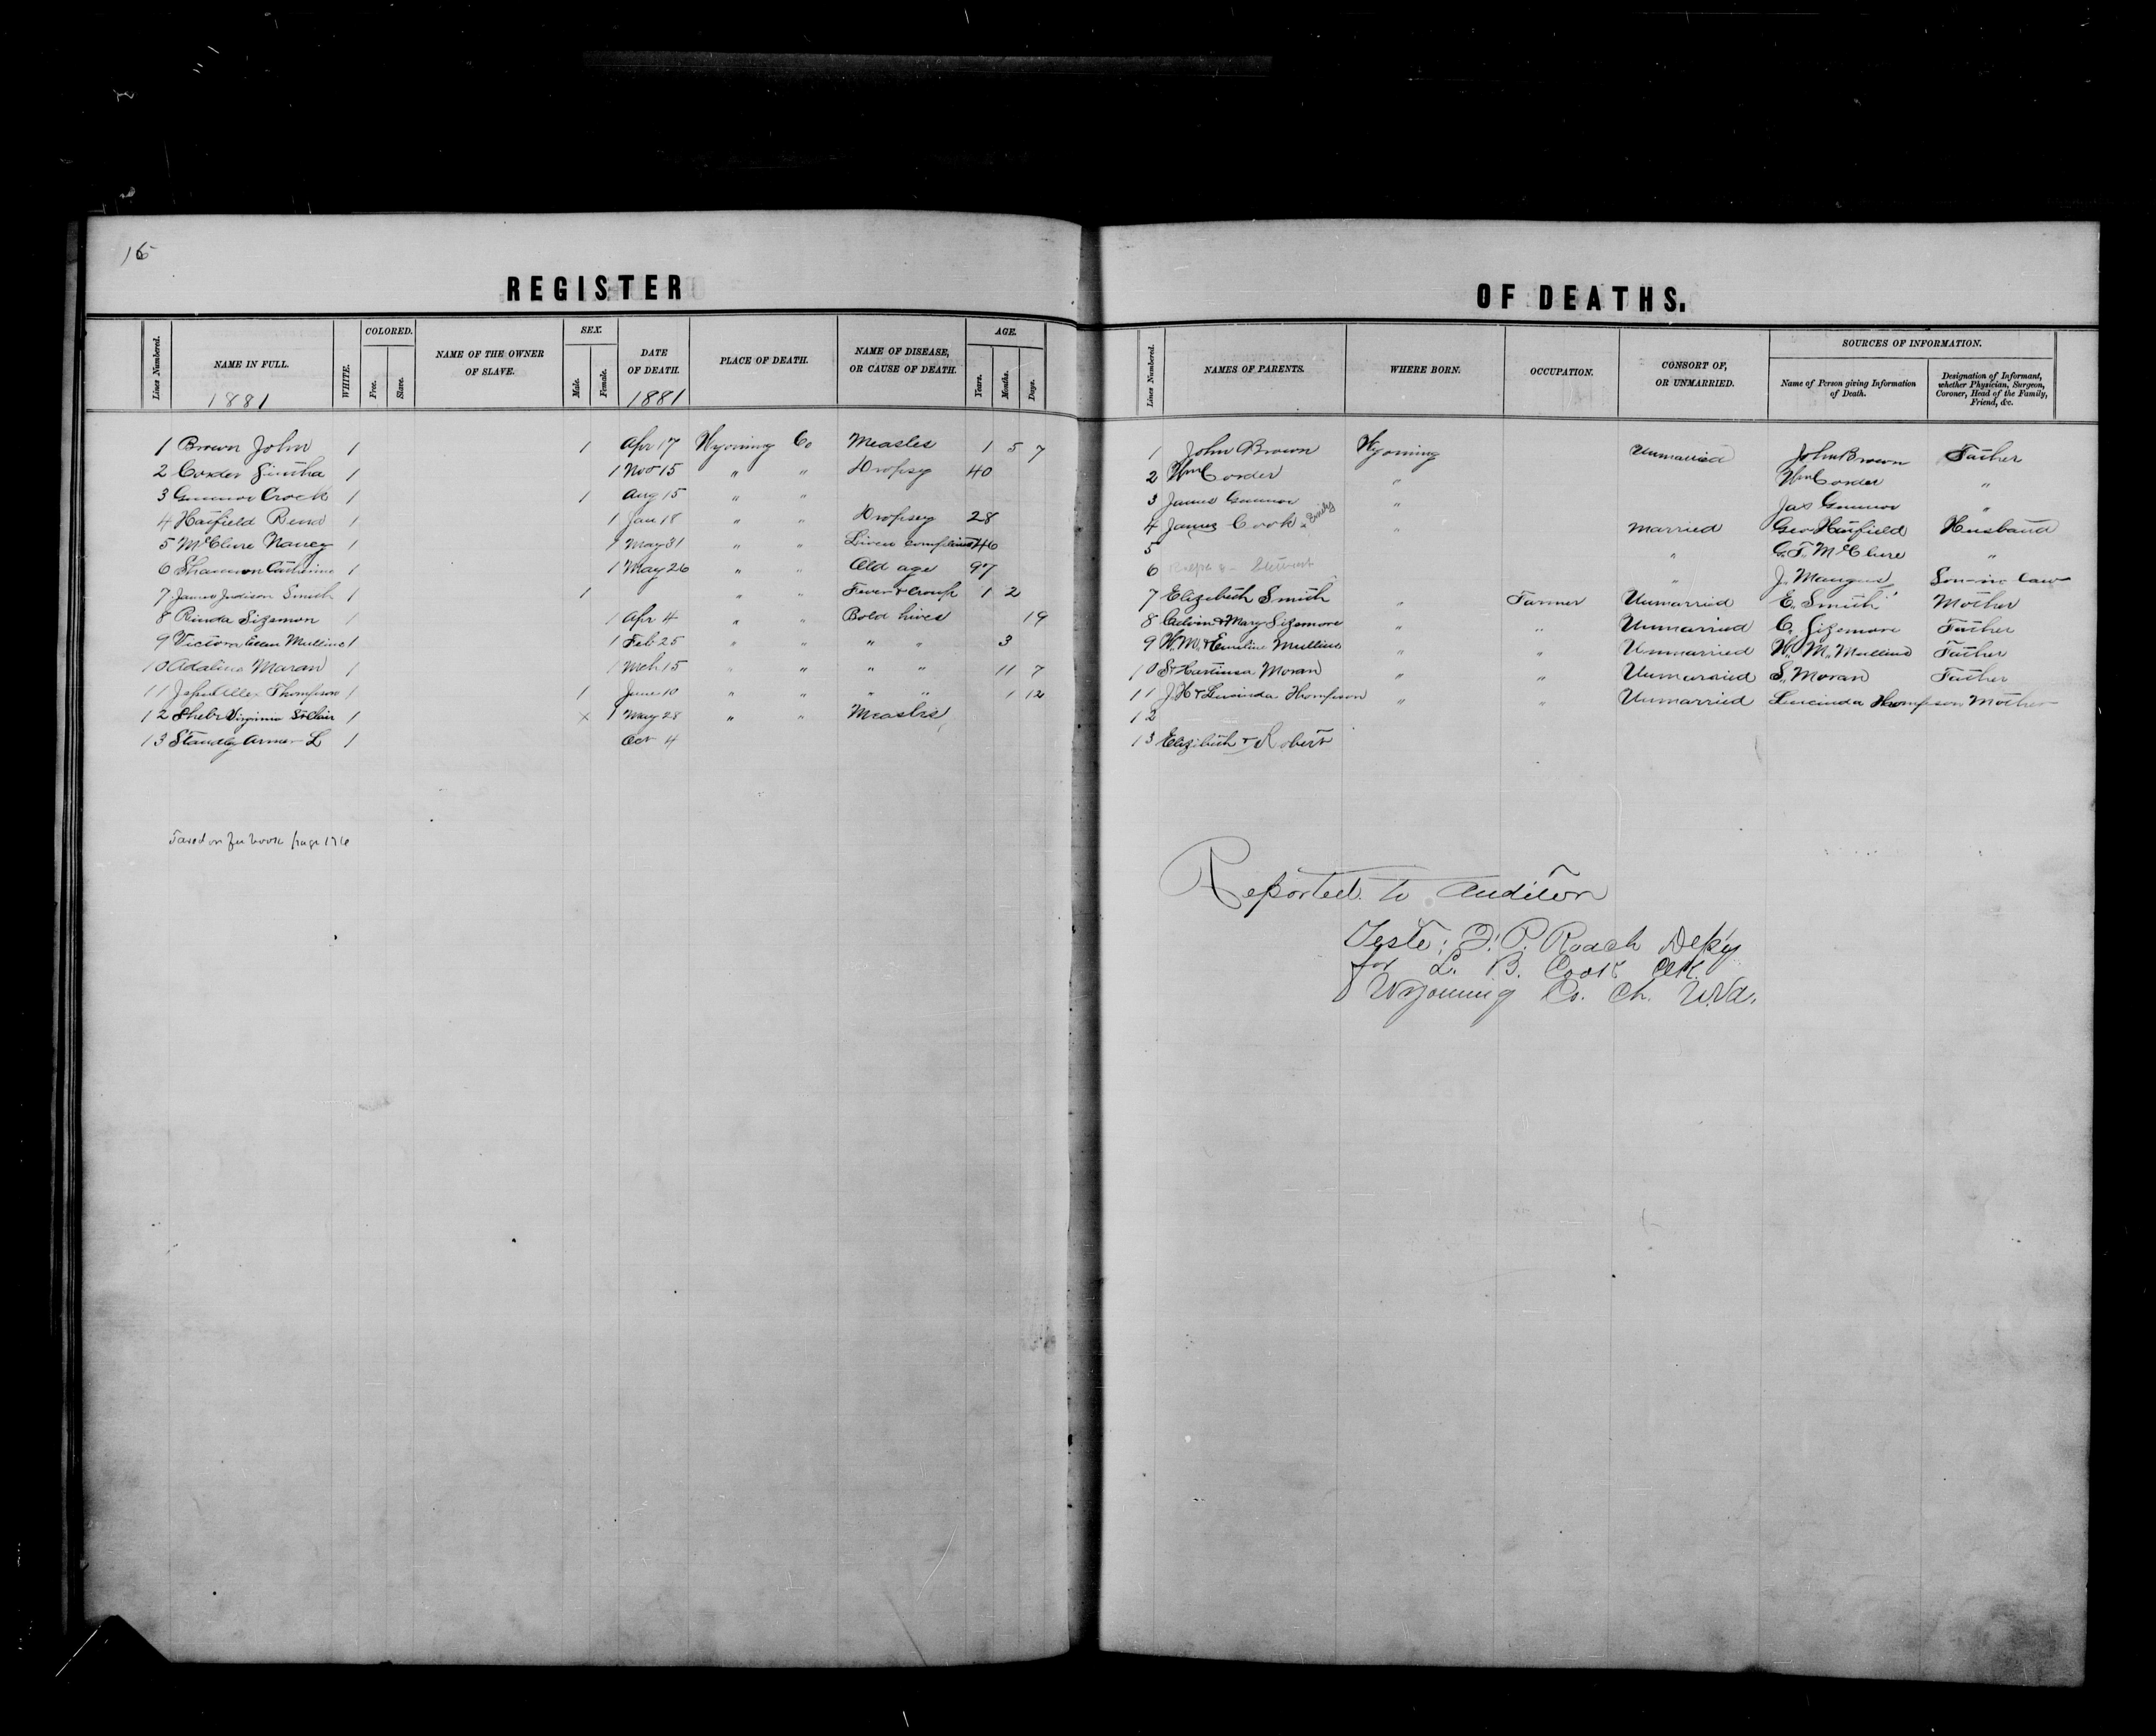 16
REGISTER
OF DEATHS.
Lines Numbered.
NAME IN FULL.
1881
WHITE.
COLORED.
Free.
Slave.
NAME OF THE OWNER OF SLAVE.
SEX.
Male.
Female.
DATE OF DEATH.
1881
PLACE OF DEATH.
NAME OF DISEASE, OR CAUSE OF DEATH.
AGE.
Years.
Months.
Days.
1 Brown John 1 1 Apr 17 Wyoming Co Measles 1 5 7
2 Corder Sintha 1 1 Nov 15 " " Dropsey 40
3 Gunnoe Crock 1 1 Aug 15 " "
4 Hatfield 1 1 Jan 18 " " Dropsey 28
5 McClure Nancy 1 1 May 31 " " Liver 46
6 Shannon Catherine 1 1 May 26 " " Old age 97
7 James Judison Smith 1 1 " " Fever & Croup 1 2
8 Rinda Sizemon 1 1 Apr 4 " " Bold hives 19
9 Victora Ellen Mullins 1 1 Feb 25 " " " " 3
10 Adaline Maran 1 1 Mch 15 " " " " 11 7
11 Allex Thompson 1 1 June 10 " " " " 1 12
12 Virginia StClair 1 x 1 May 28 " " Measles
13 Standley L 1 Oct 4
Taxed on fee book page 176
Lines Numbered.
NAMES OF PARENTS.
WHERE BORN.
OCCUPATION.
CONSORT OF, OR UNMARRIED.
SOURCES OF INFORMATION.
Name of Person giving Information of Death.
Designation of Informant, whether Physician, Surgeon, Coroner, Head of the Family, Friend, &c.
1 John Brown Wyoming Unmarried John Brown Father
2 Wm Corder " Wm Corder "
3 James Gunnoe " Jas Gunnoe "
4 James Cook & Emily " Married Geo Hatfield Husband
5 " G. T. McClure "
6 Ralph & Stewart " J. Son-in-law
7 Elizebeth Smith " Farmer Unmarried E. Smith Mother
8 Calvin & Mary Sizemore " " Unmarried C. Sizemore Father
9 W. M. & Emeline Mullins " " Unmarried W. M. Mullins Father
10 S & Moran " " Unmarried S. Moran Father
11 J. H & Lucinda Thompson " " Unmarried Lucinda Thompson Mother
12
13 Elizibeth & Robert
Reported to Auditor
Teste: P. Roach Dep'y
for L. B. Cook Clk
Wyoming Co. Ct. W.Va.